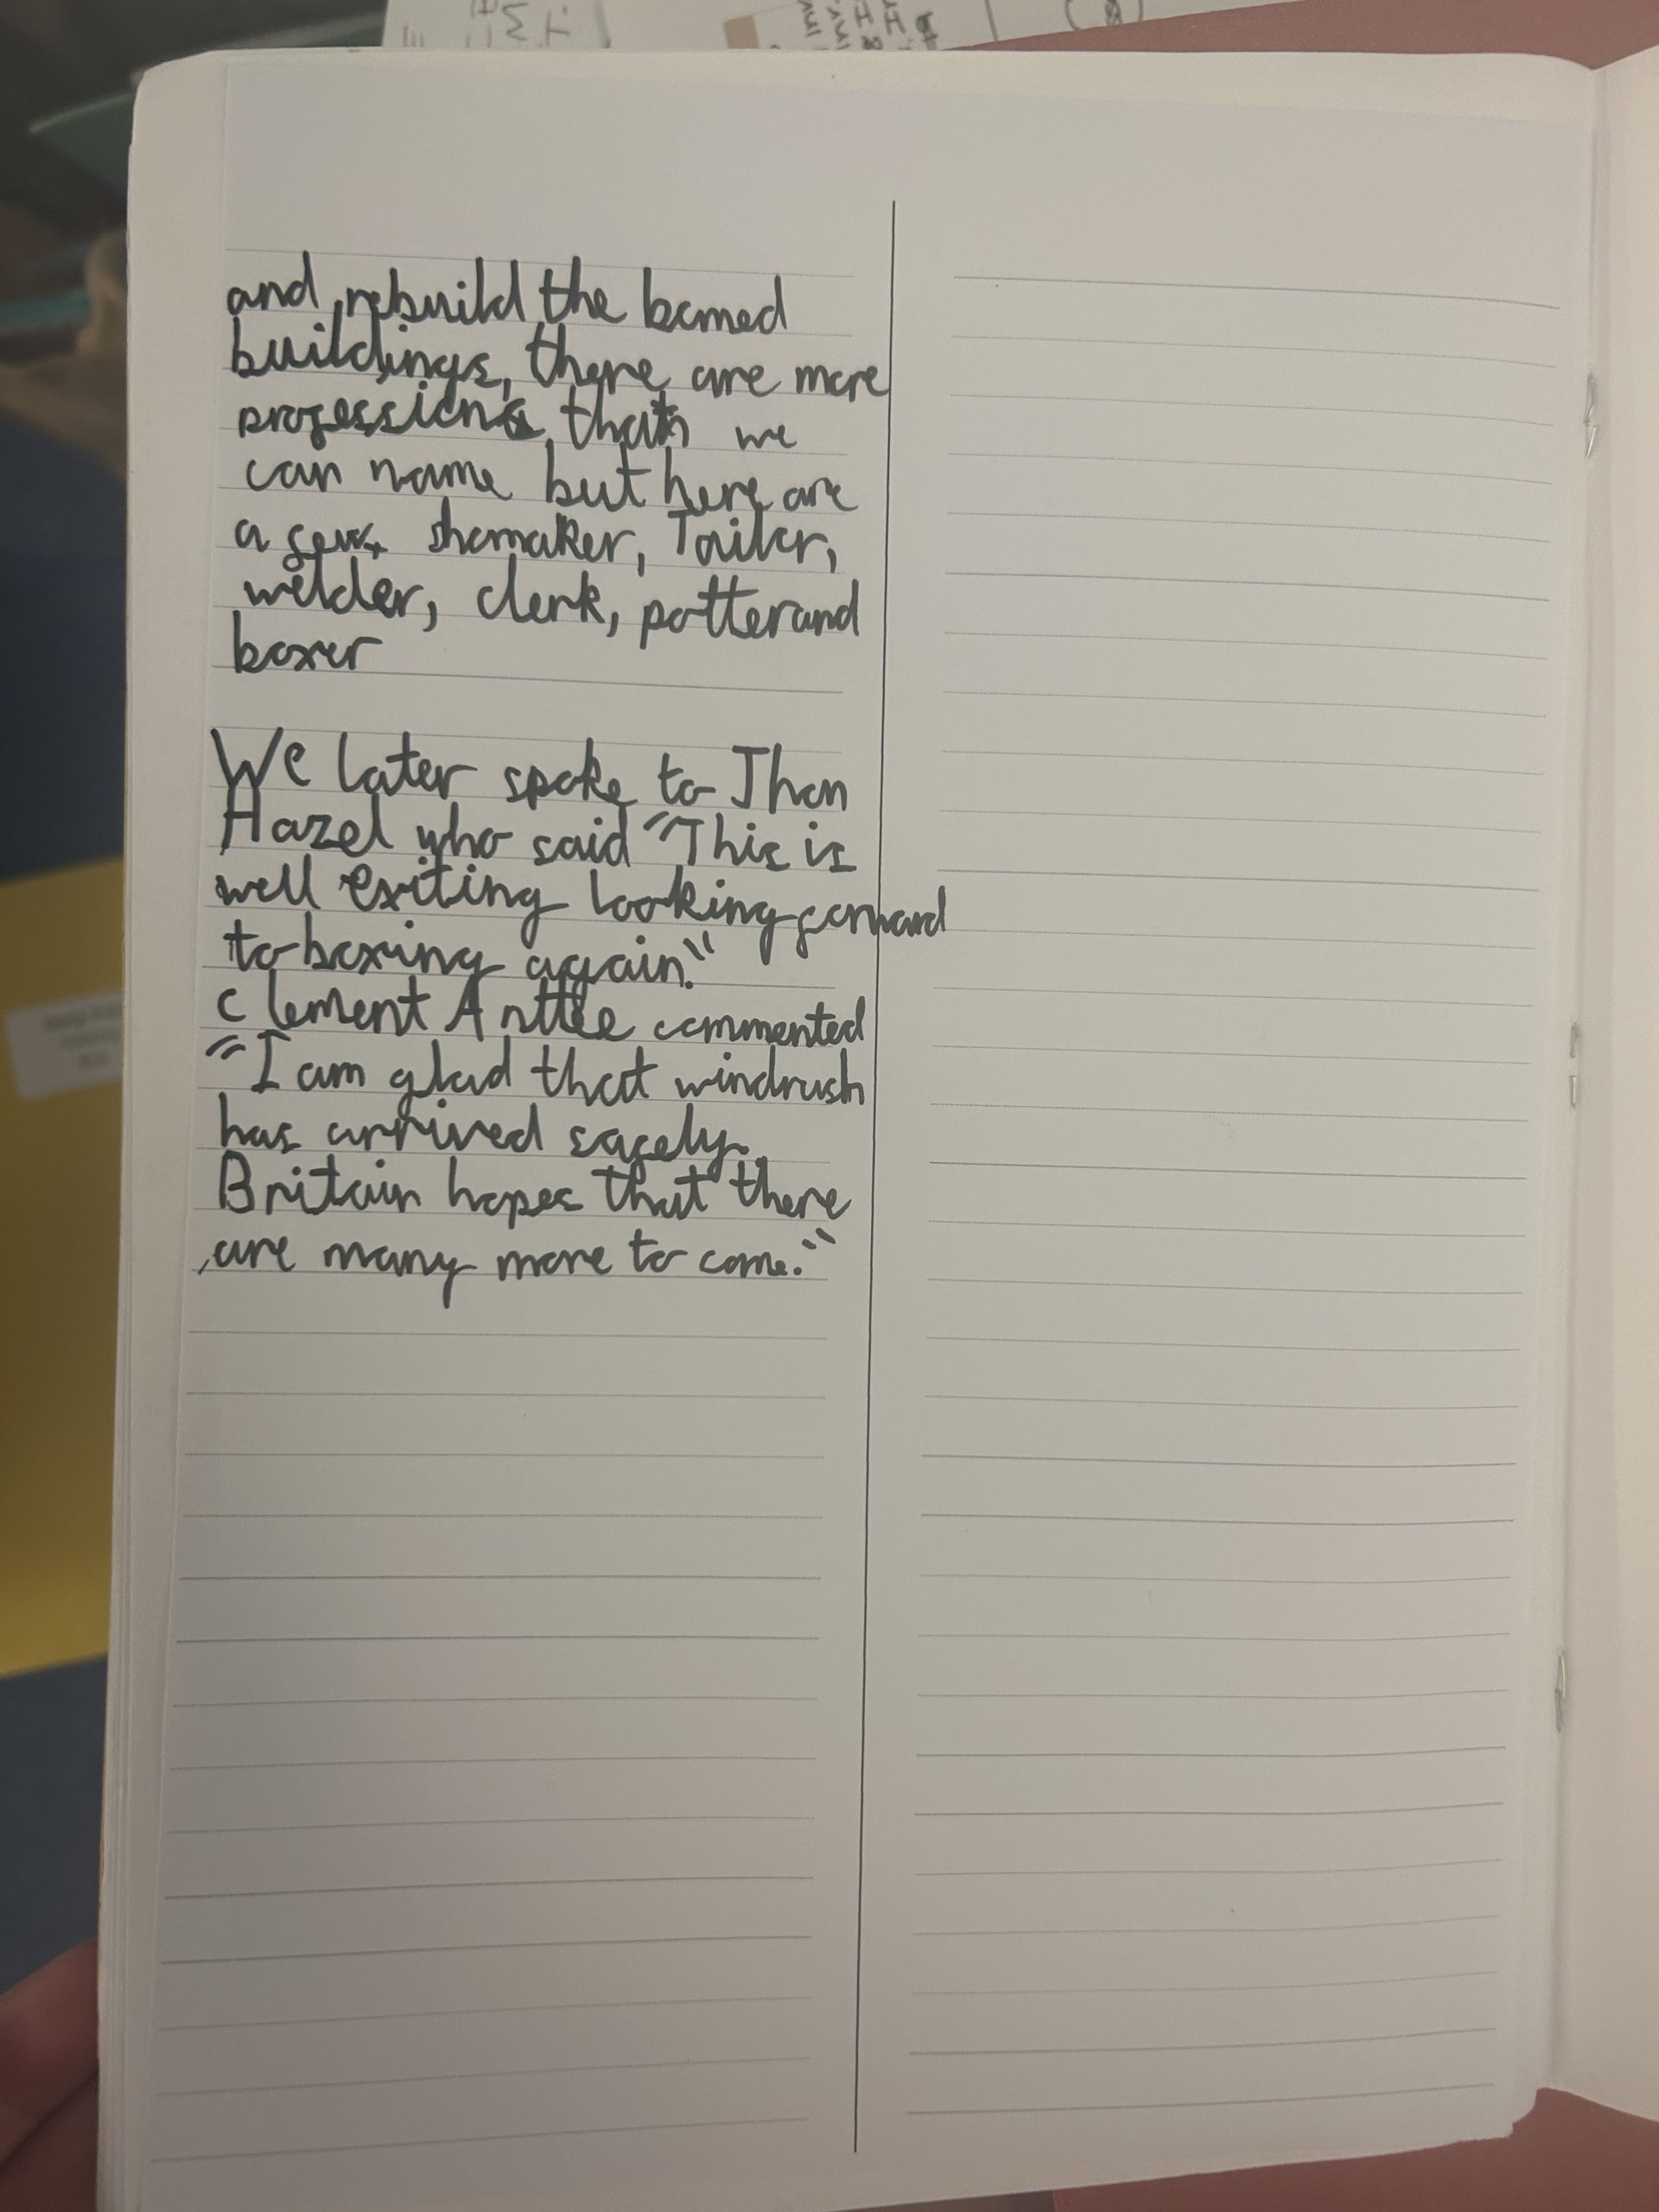 and rebuild the bomed
buildings, there are more
professions than we
can name but here are
a few shomaker, Tailor,
welder, clerk, potter and
boxer
We later spoke to Jhon
Hazel who said "This is
well exiting looking forward
to boxing again."
Clement Anttle commented
"I am glad that windrush
has arrived safely.
Britain hopes that there
are many more to come."